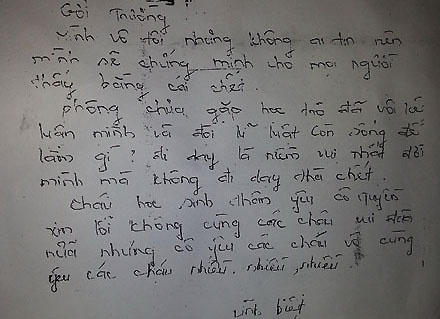 Gởi Trường
Mình vô tội nhưng không ai tin nên
mình sẽ chứng minh cho mọi người
thấy bằng cái chết.
phòng chưa gặp học trò đã vội kết
luận mình và đòi kỉ luật còn sống để
làm gì? đi dạy là niềm vui nhất đời
mình mà không đi dạy thà chết.
Cháu học sinh thân yêu cô Quyên
xin lỗi không cùng các cháu vui đùa
nữa nhưng cô yêu các cháu vô cùng
yêu các cháu nhiều, nhiều, nhiều.
vĩnh biệt